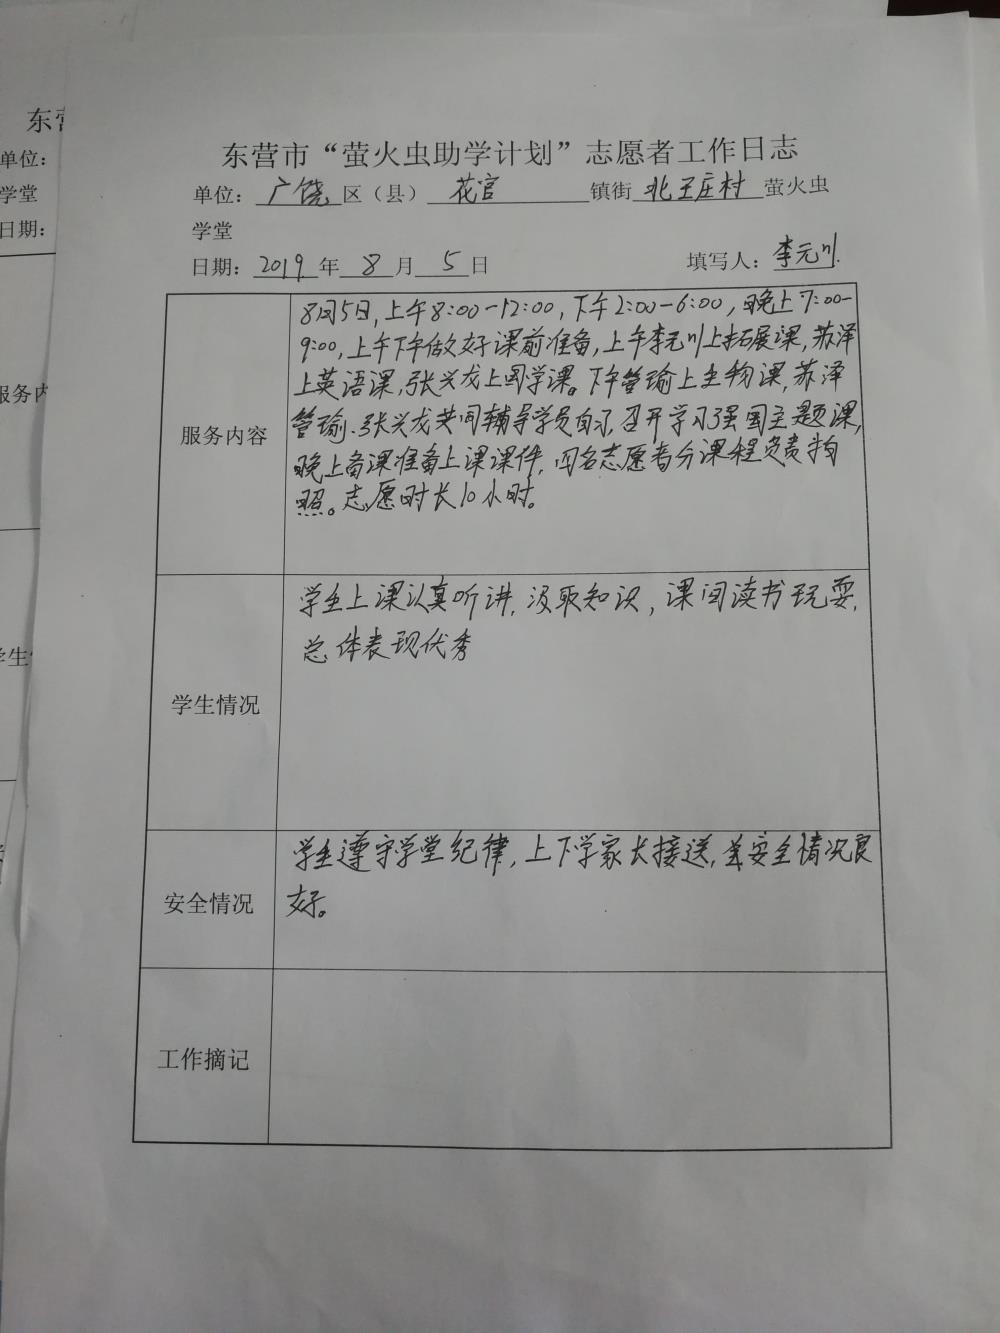 东营市“萤火虫助学计划”志愿者工作日志
单位：广饶区（县）花官镇街北王庄村萤火虫
学堂
日期：2019年8月5日 填写人：李元川.
服务内容
8月5日,上午8:00-12:00,下午2:00-6:00,晚上7:00-
9:00,上午下午做好课前准备,上午李元川上拓展课,苏泽
上英语课,张兴龙上国学课。下午管瑜上生物课,苏泽
管瑜、张兴龙共同辅导学员自习,召开学习强国主题课,
晚上备课准备上课课件,四名志愿者分课程负责拍
照。志愿时长10小时。
学生情况
学生上课认真听讲,汲取知识,课间读书玩耍,
总体表现优秀
安全情况
学生遵守学堂纪律,上下学家长接送,安全情况良
好。
工作摘记
东营
单位：
学堂
日期：
服务内
学生